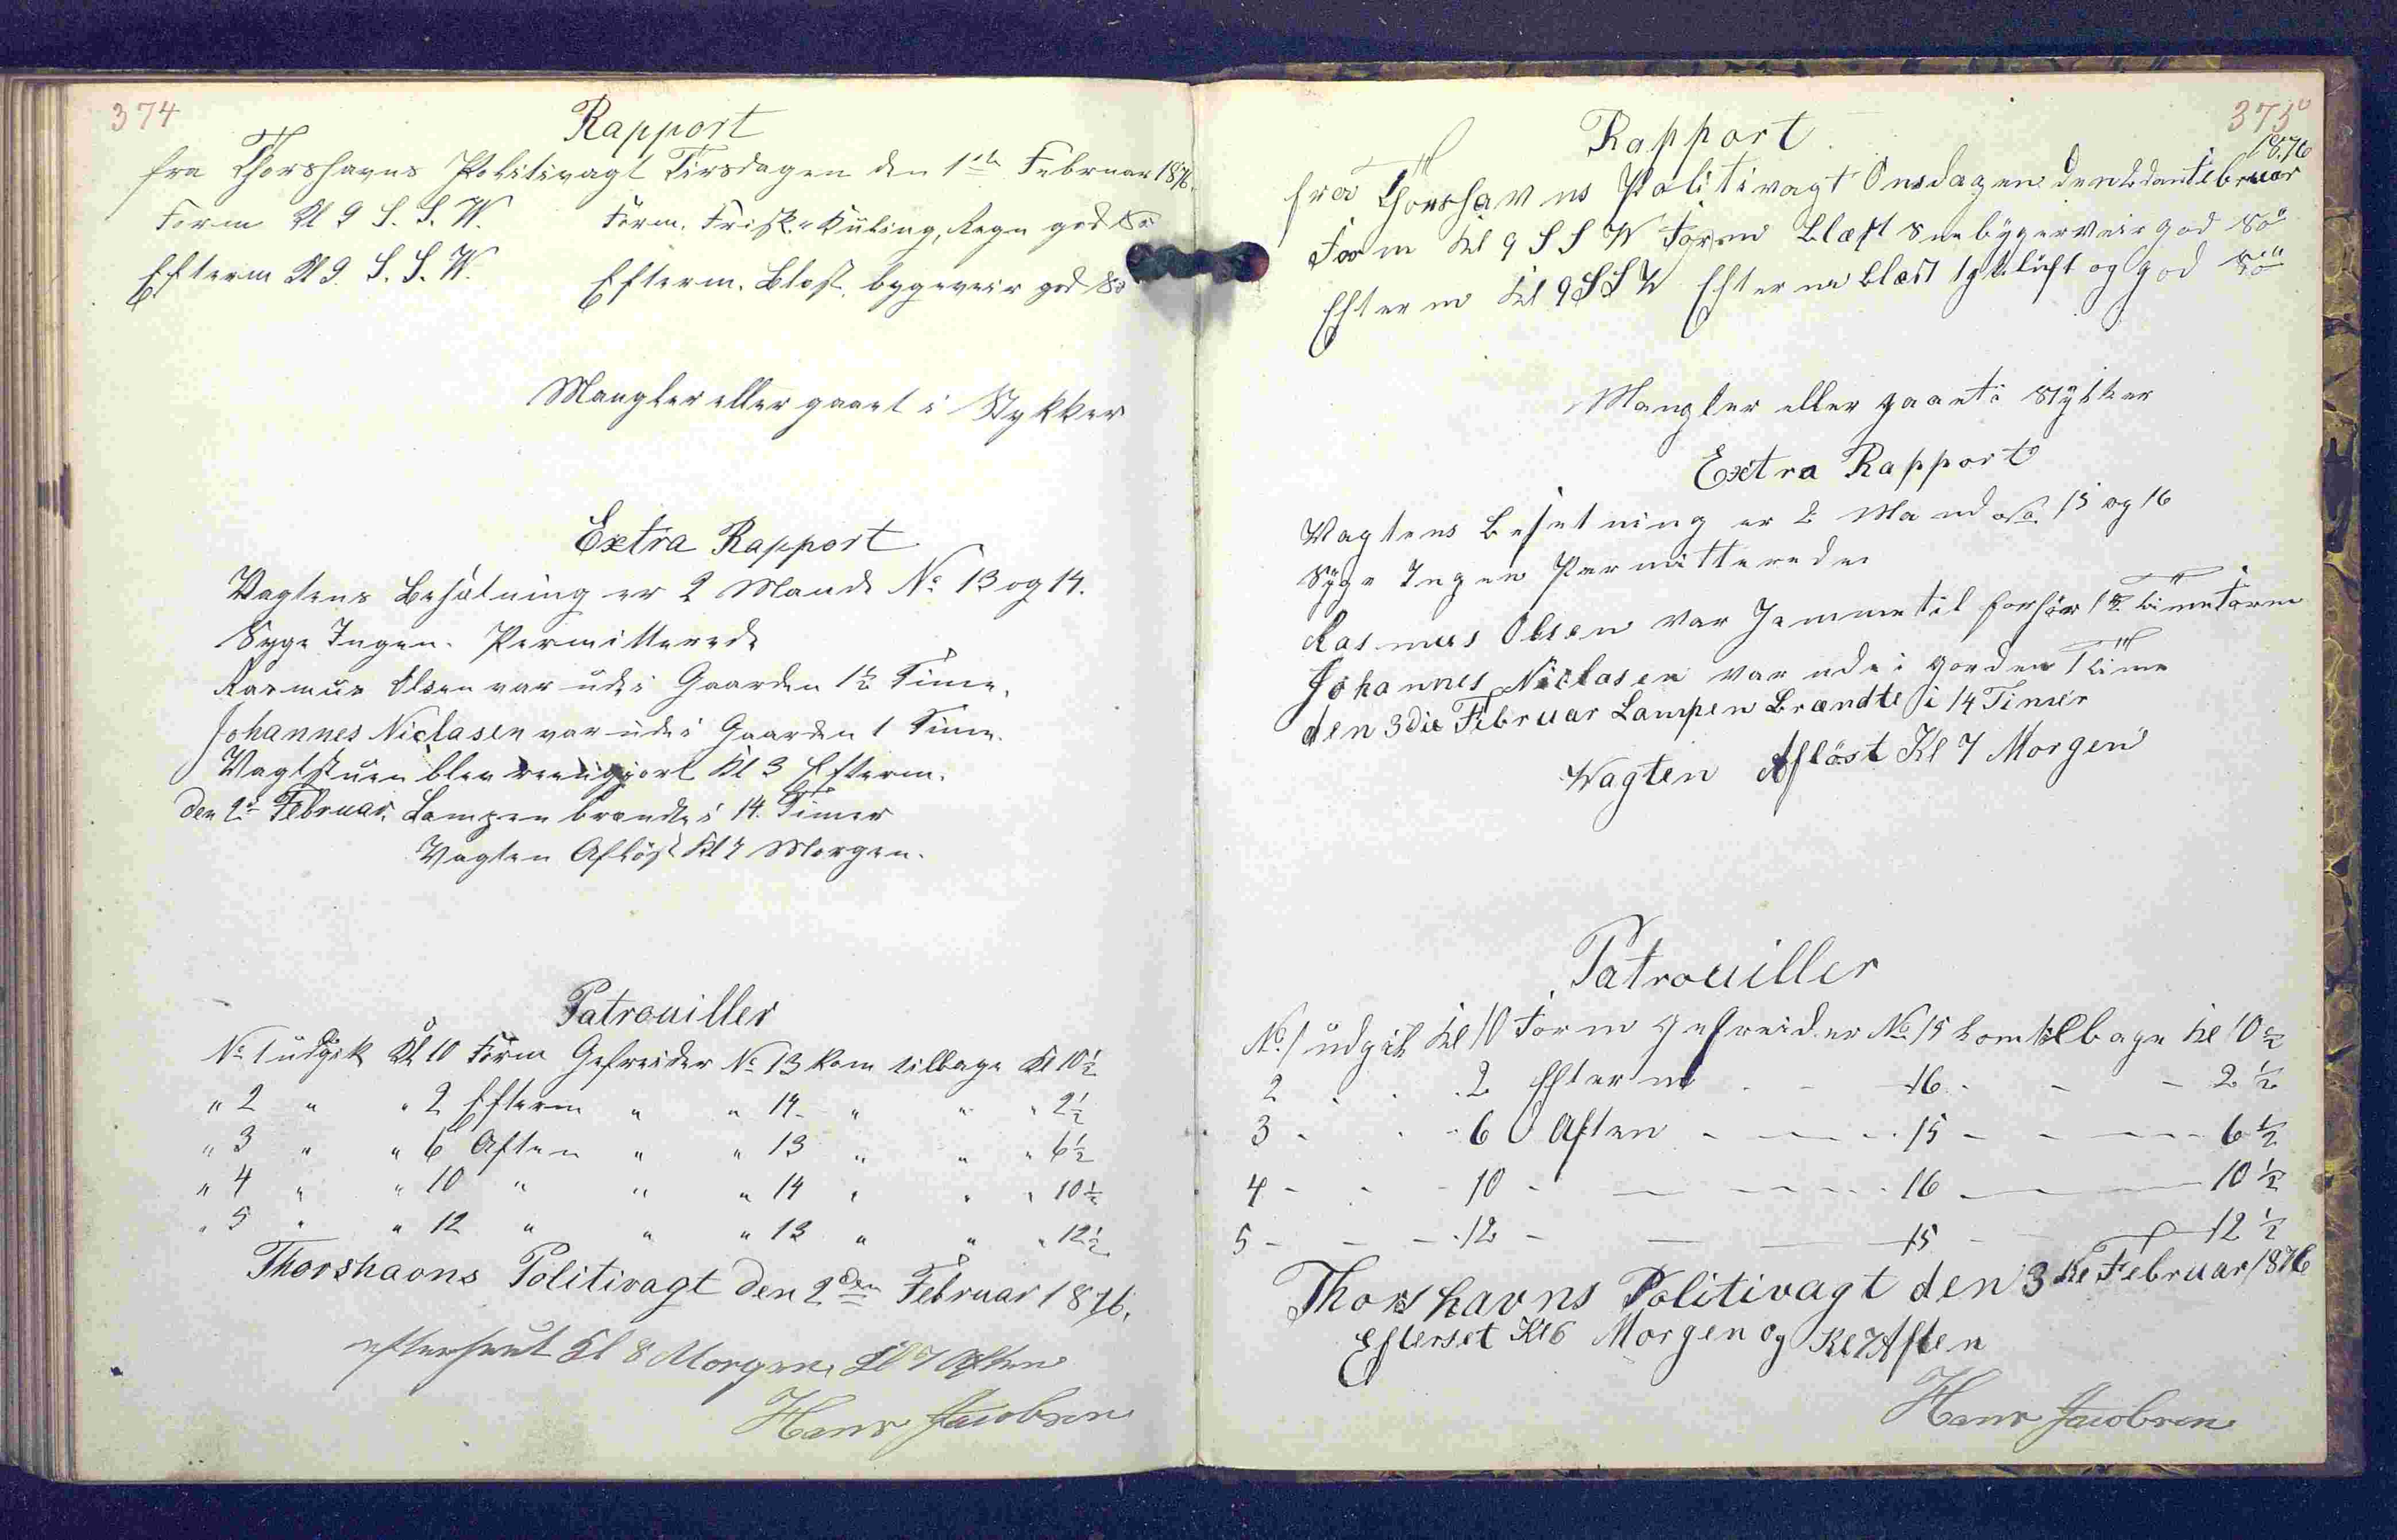 374
Rapport
fra Thorshavns Politivagt Tirsdagen den 1ste Februar 1876.
Form Kl 9 S. S. W. Form. Frisk Kuling, Regn god Sö
Efterm Kl 9. S. S. W. Efterm. Blæst, bygeveir god Sö
Mangler eller gaaet i Stykker
Extra Rapport
Vagtens Besætning er 2 Mand No 13 og 14.
Syge Ingen. Permitterede
Rasmus Olsen var ude i Gaarden 1½ Time.
Johannes Niclasen var ude i Gaarden 1 Time.
Vagtstuen blev reengjort Kl 3 Efterm.
den 2den Februar. Lampen brændte i 14 Timer
Vagten Aflöst Kl 7 Morgen.
Patrouiller
No 1 udgik Kl 10 Form Gefreider No 13 kom tilbage Kl 10½
" 2 " " 2 Efterm " " 14 " " " 2½
" 3 " " 6 Aften " " 13 " " " 6½
" 4 " " 10 " " " 14 " " " 10½
" 5 " " 12 " " " 13 " " " 12½
Thorshavns Politivagt den 2den Februar 1876.
efterseet Kl 8 Morgen, Kl 7 Aften
Hans Jacobsen
375
Rapport
1876
fra Thorshavns Politivagt Onsdagen den 2den Februar
Form Kl 9 S S W Form Blæst Snebygerveir god Sö
Efterm Kl 9 S S W Efterm Blæst luft og god Sö
Mangler eller gaaet i Stykker
Extra Rapport
Vagtens Besetning er 2 Mand No 15 og 16
Syge Ingen Permitterede
Rasmus Olsen var Jemme til forhör 1½ Time Form
Johannes Niclasen var ude i gorden 1 Time
den 3die Februar Lampen Brændte i 14 Timer
Vagten Aflöst Kl 7 Morgen
Patrouiller
No 1 udgik Kl 10 Form gefreider No 15 kom tilbage Kl 10½
2 . . . 2 Efterm . - 16 - - - 2½
3 - . - 6 Aften - - - 15 - - - 6½
4 - - - 10 - - - - 16 - - 10½
5 - - - 12 - - - 15 - - 12½
Thorshavns Politivagt den 3die Februar 1876
Efterset Kl 6 Morgen og Kl 7 Aften
Hans Jacobsen